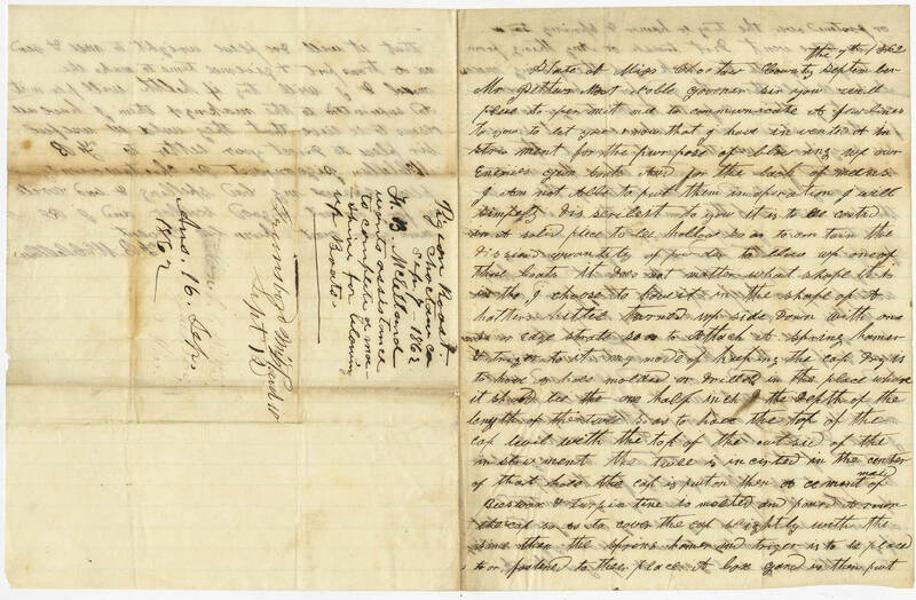 Pigeon Roost
Choctaw co
Sep 7 - 1862
H. B. McClelland
wants assistance
to compleate a ma-
chine for blowing
up Boats.
Sept 18
Ans. 16. Sep.
1862
the 7th / 1862
State of Miss Choctaw County September
Mr Pettus Most noble governor sir you will
please to permit me to communicate a few lines
to you to let you know that I have invented an in
strument for the purpose of blowing up our
Enemes gun boats And for the lack of means
I Am not Able to put them in operation I will
simply discribe it to you it is to be casted
in A solid piece to be hollow so as to contain the
quantity of powder to blow up one of
those boats it does not matter what shape it
is tho I choose to have it in the shape of A
hatters kittle turned up side down with one
or edge strate so as to Attach A spring hamer
& triger to it my mode of keeping the cap dry is
to have a hole molded or drilled in the place where
it should be the one half inch & the depth of the
length of the tube so as to have the top of the
cap level with the top of the out side of the
instrument the tube is incerted in the center
of that hole the cap is put on then A cement made of
Beeswax & turpintine is melted and poured A roun
the cap so as to cover the cap slightly with the
same then the spring hamer and triger is to be place
to or fastened to their place A box is then put